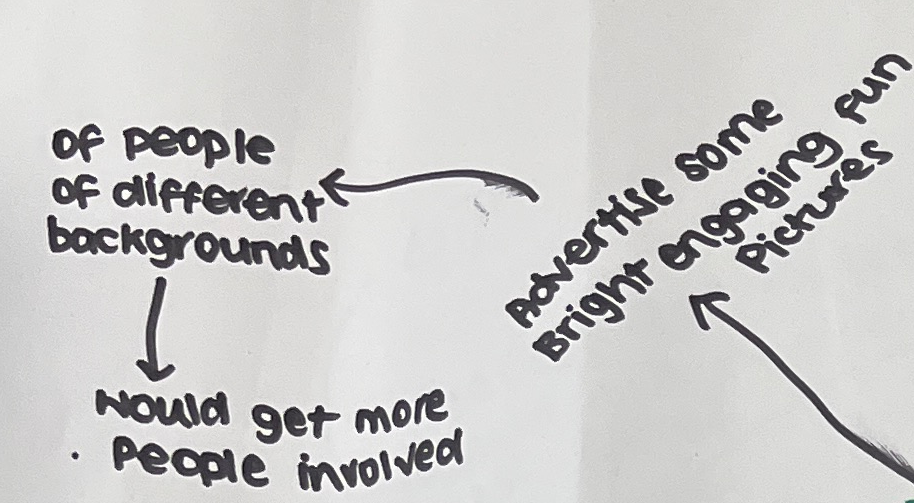 Advertise some
Bright engaging fun
Pictures
Of people
of different
backgrounds
Would get more
People involved